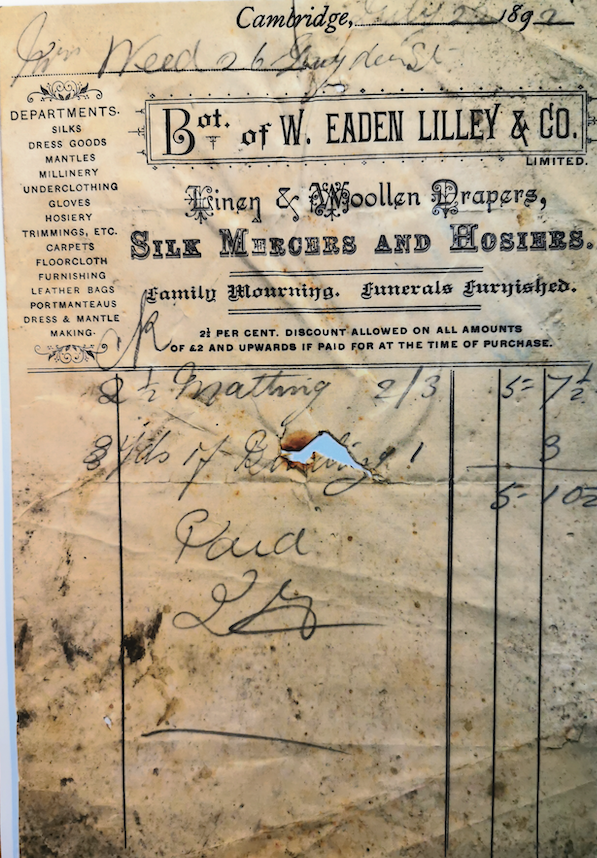 Cambridge, July 1892
Mrs Weed 26 St
DEPARTMENTS.
SILKS
DRESS GOODS
MANTLES
MILLINERY
UNDERCLOTHING
GLOVES
HOSIERY
TRIMMINGS, ETC.
CARPETS
FLOORCLOTH
FURNISHING
LEATHER BAGS
PORTMANTEAUS
DRESS & MANTLE
MAKING.
Bot. of W. EADEN LILLEY & CO.
LIMITED.
Linen & Woollen Drapers,
SILK MERCERS AND HOSIERS.
Family Mourning. Funerals Furnished.
2½ PER CENT. DISCOUNT ALLOWED ON ALL AMOUNTS
OF £2 AND UPWARDS IF PAID FOR AT THE TIME OF PURCHASE.
2½ Matting 2/3 5 7½
3 Yds of 1 3
5 10½
Paid